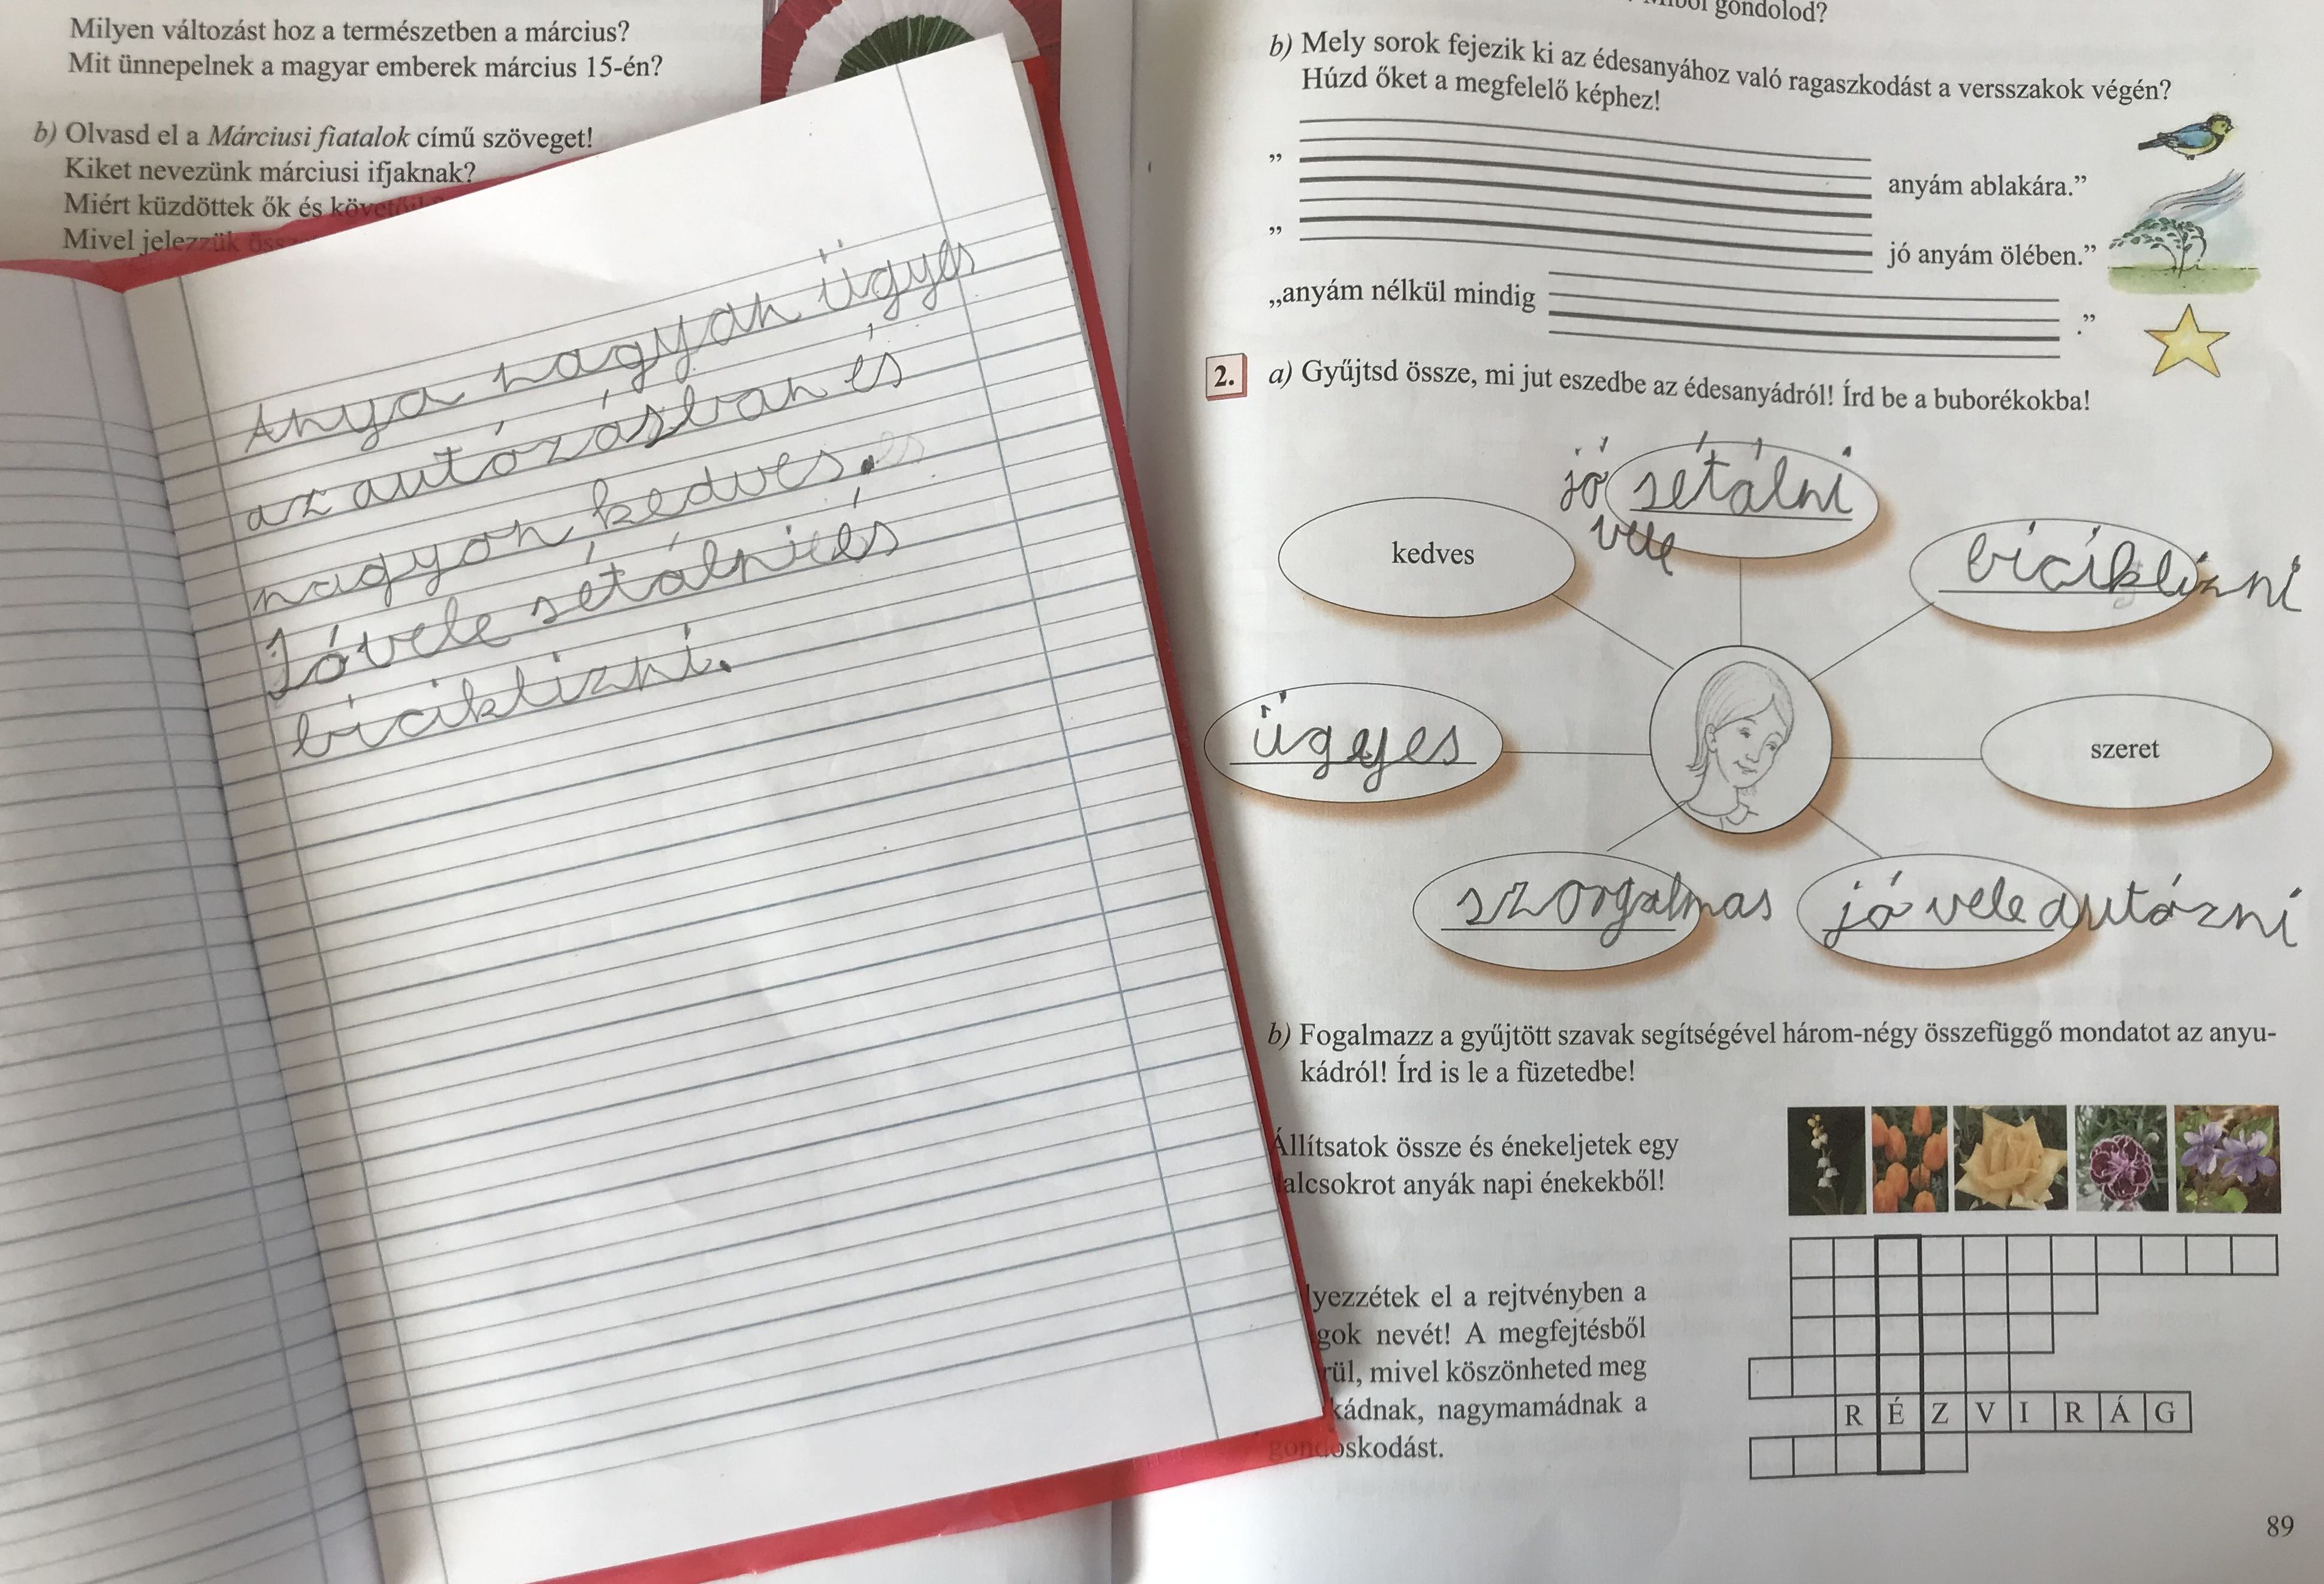 Milyen változást hoz a természetben a március?
Mit ünnepelnek a magyar emberek március 15-én?
b) Olvasd el a Márciusi fiatalok című szöveget!
Kiket nevezünk márciusi ifjaknak?
Miért küzdöttek ők és követőik
Mivel jelezzük
Anya nagyon ügyes
az autózásban és
nagyon kedves.
Jó vele sétálni és
biciklizni.
gondolod?
b) Mely sorok fejezik ki az édesanyához való ragaszkodást a versszakok végén?
Húzd őket a megfelelő képhez!
„ anyám ablakára.”
„ jó anyám ölében.”
„anyám nélkül mindig .”
2. a) Gyűjtsd össze, mi jut eszedbe az édesanyádról! Írd be a buborékokba!
jó sétálni
vele
kedves
biciklizni
ügyes
szeret
szorgalmas
jó vele autózni
b) Fogalmazz a gyűjtött szavak segítségével három-négy összefüggő mondatot az anyu-
kádról! Írd is le a füzetedbe!
Állítsatok össze és énekeljetek egy
alcsokrot anyák napi énekekből!
lyezzétek el a rejtvényben a
gok nevét! A megfejtésből
rül, mivel köszönheted meg
kádnak, nagymamádnak a
gondoskodást.
RÉZVIRÁG
89